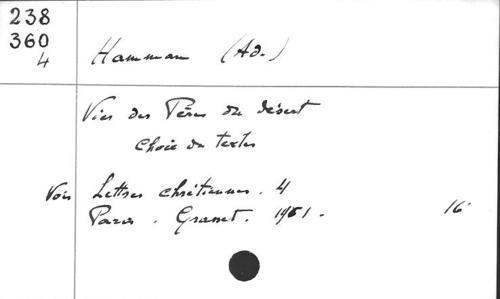 238
360
4
Hamman (Ad.)
Vies des Pères du désert
Choix de textes
Voir Lettres chrétiennes. 4
Paris. Grasset. 1961. 16